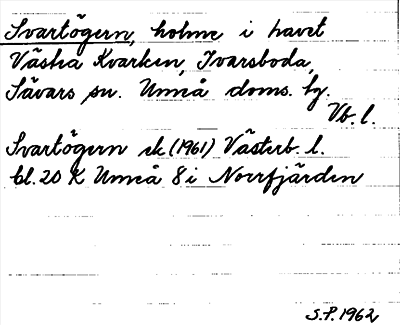 Svartögern, holme i havet
Västra Kvarken, Ivarsboda,
Sävars sn. Umeå doms. hg.
Vb. l.
Svartögern ek (1961) Västerb. l.
bl. 20 K Umeå 8 i Norrfjärden
S.P. 1962